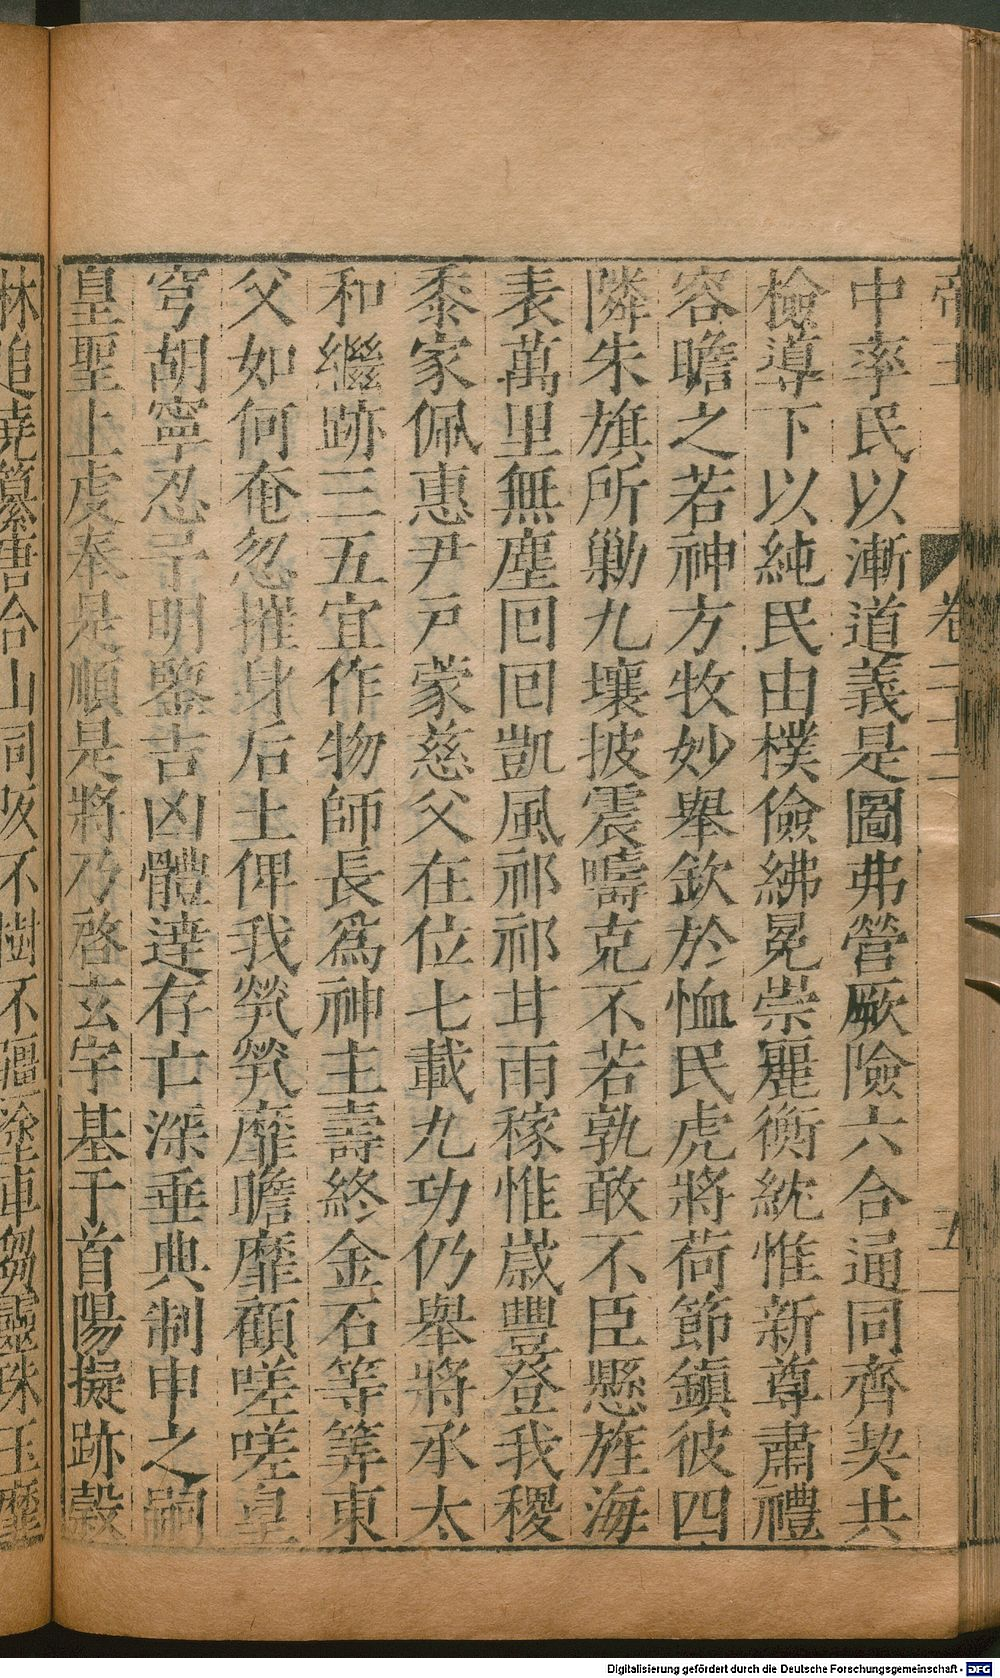 中率民以漸道義是圖弗營厥險六合通同齊契共
檢導下以純民由樸儉紼冕崇麗衡紞惟新尊肅禮
容瞻之若神方牧妙舉欽於恤民虎將荷節鎮彼四
隣朱旗所勦九壤披震疇克不若孰敢不臣懸旌海
表萬里無塵回回凱風祁祁甘雨稼惟歲豐登我稷
黍家佩惠尹戸蒙慈父在位七載九功仍舉將承太
和繼跡三五宜作物師長爲神主壽終金石等筭東
父如何奄忽摧身后土俾我煢煢靡瞻靡顧嗟嗟皇
穹胡寧忍予明鑒吉凶體達存亡深垂典制申之嗣
皇聖上虔奉是順是將乃啓玄宇基于首陽擬跡穀
林追堯纂唐合山同阪不樹不疆塗車芻靈珠玉靡
卷二十二
五
Digitalisierung gefördert durch die Deutsche Forschungsgemeinschaft - DFG